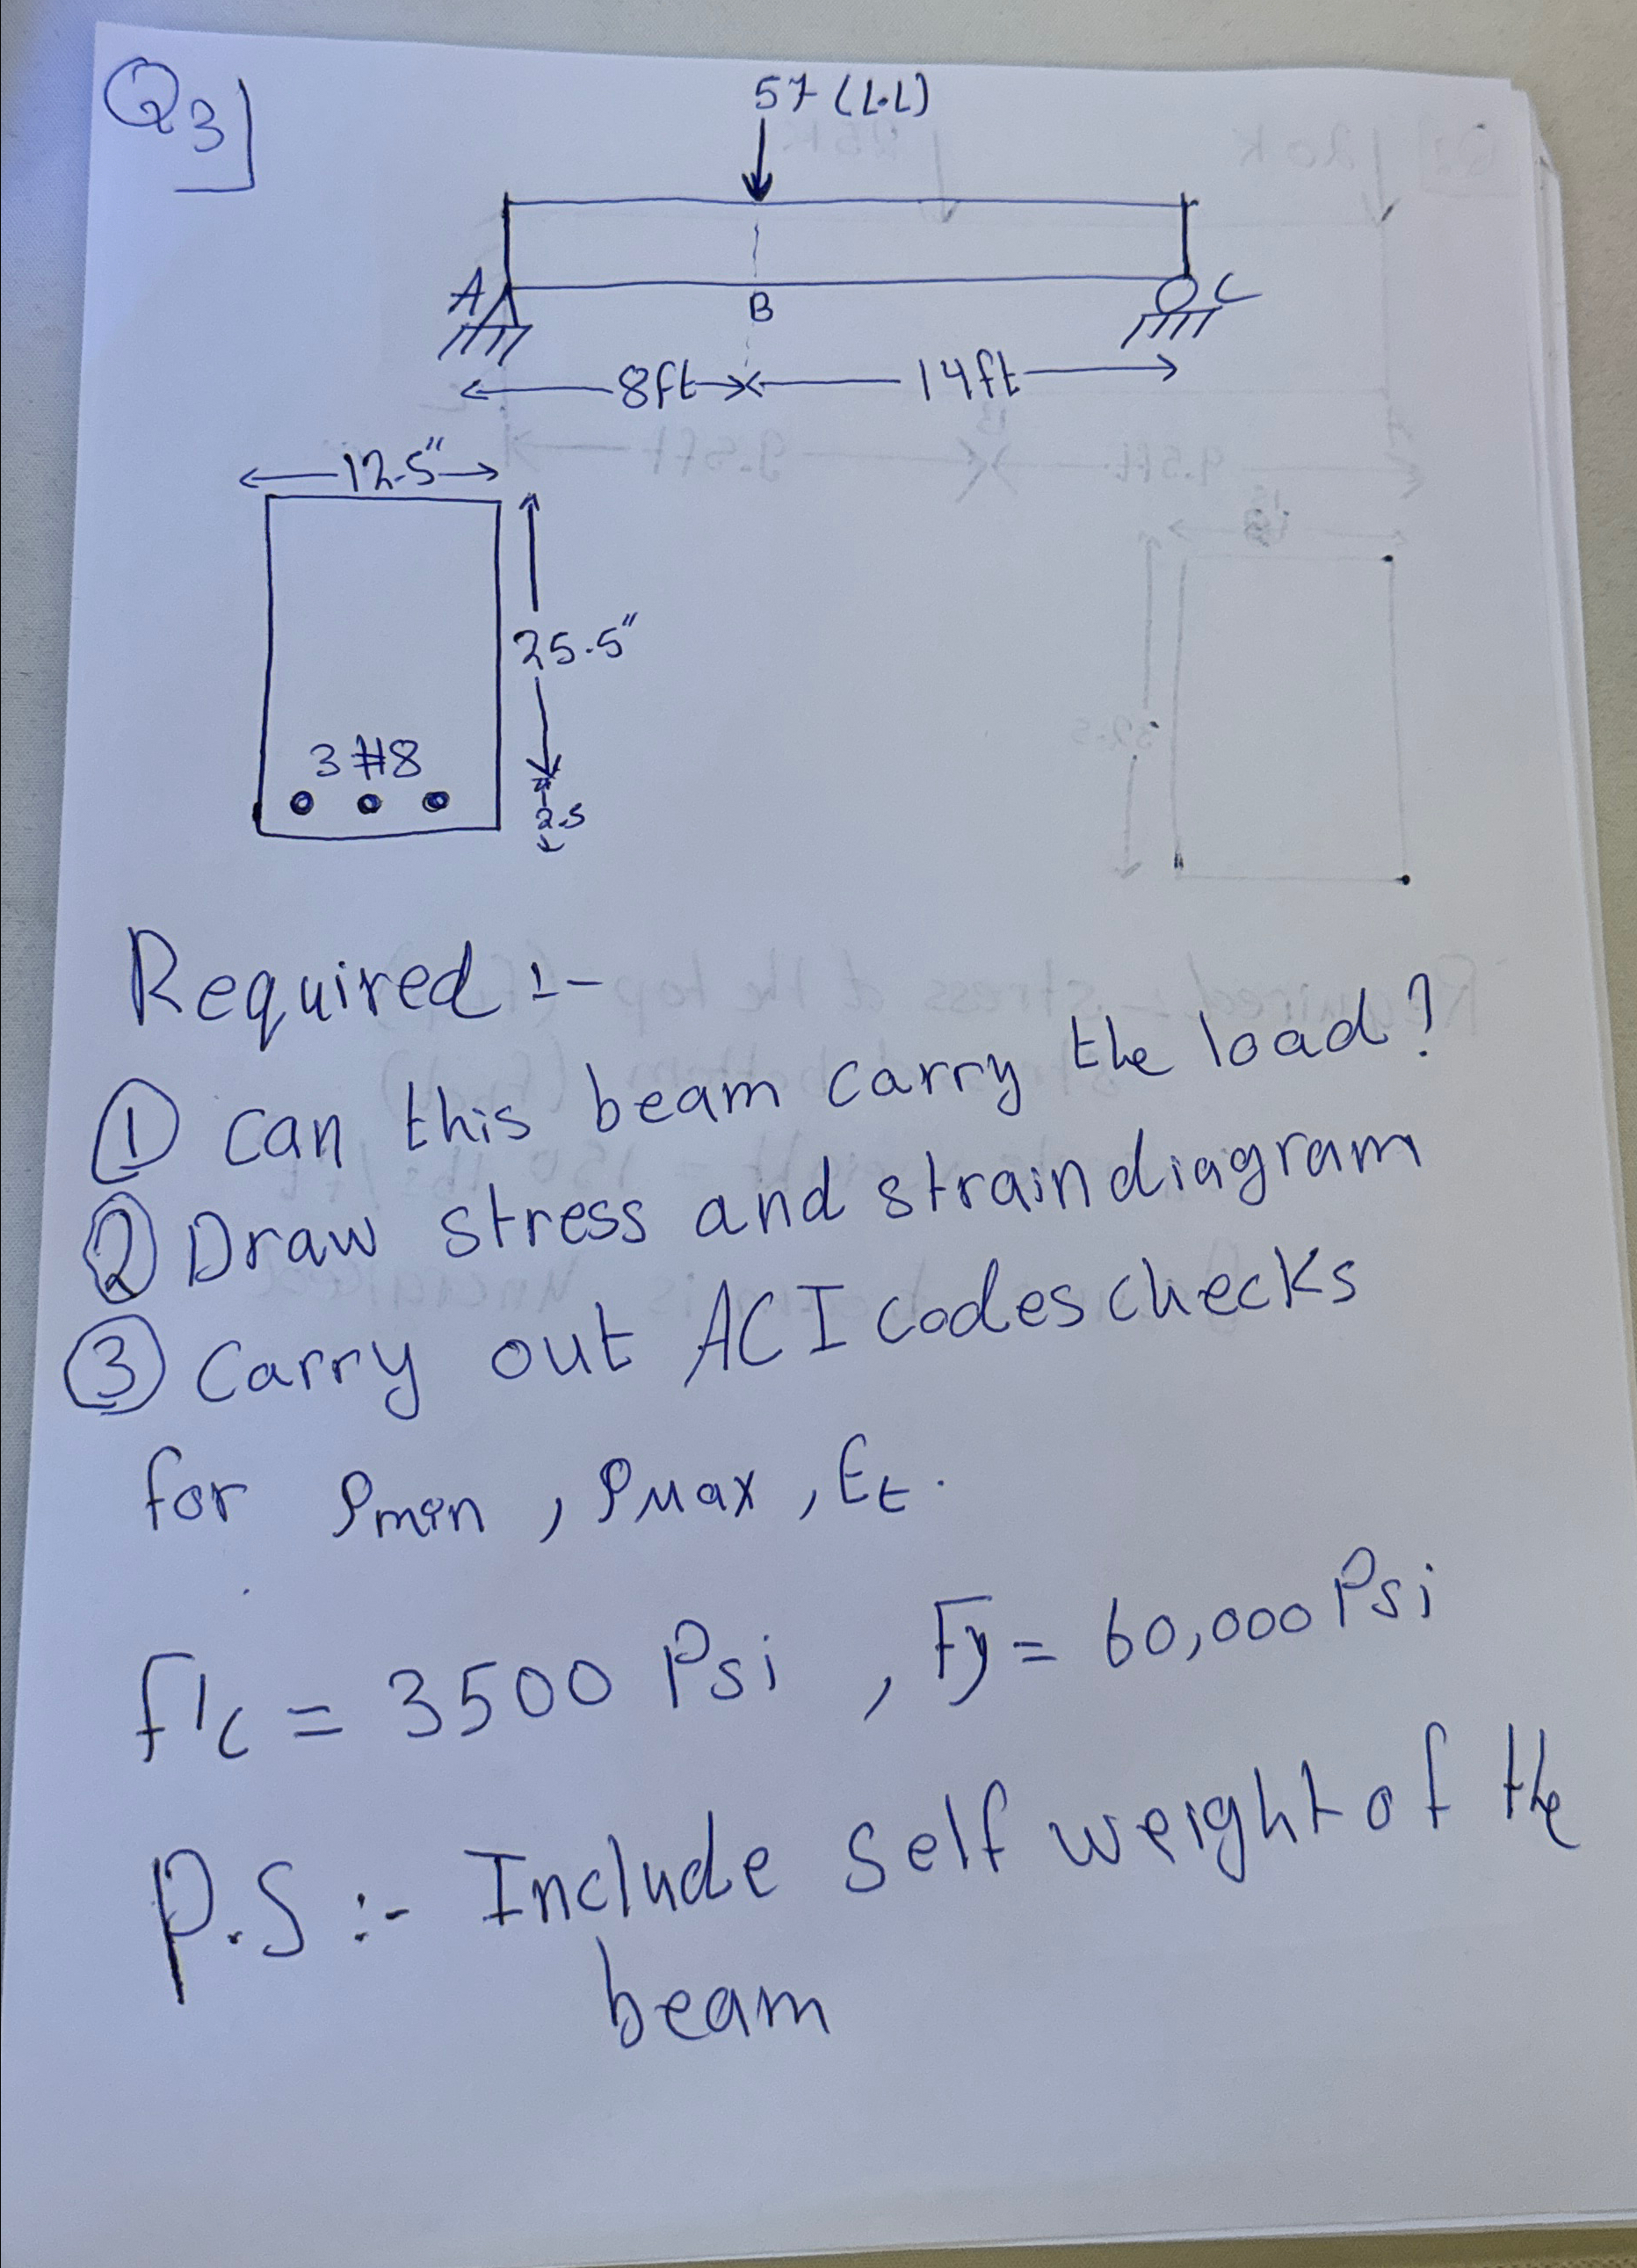 Q3
57 (L.L)
A
B
C
8ft
14ft
12.5"
25.5"
3#8
2.5
Required :-
① can this beam carry the load?
② Draw stress and strain diagram
③ Carry out ACI codes checks
for ρmin, ρMax, Et.
f'c = 3500 Psi, Fy = 60,000 Psi
P.S :- Include self weight of the
beam